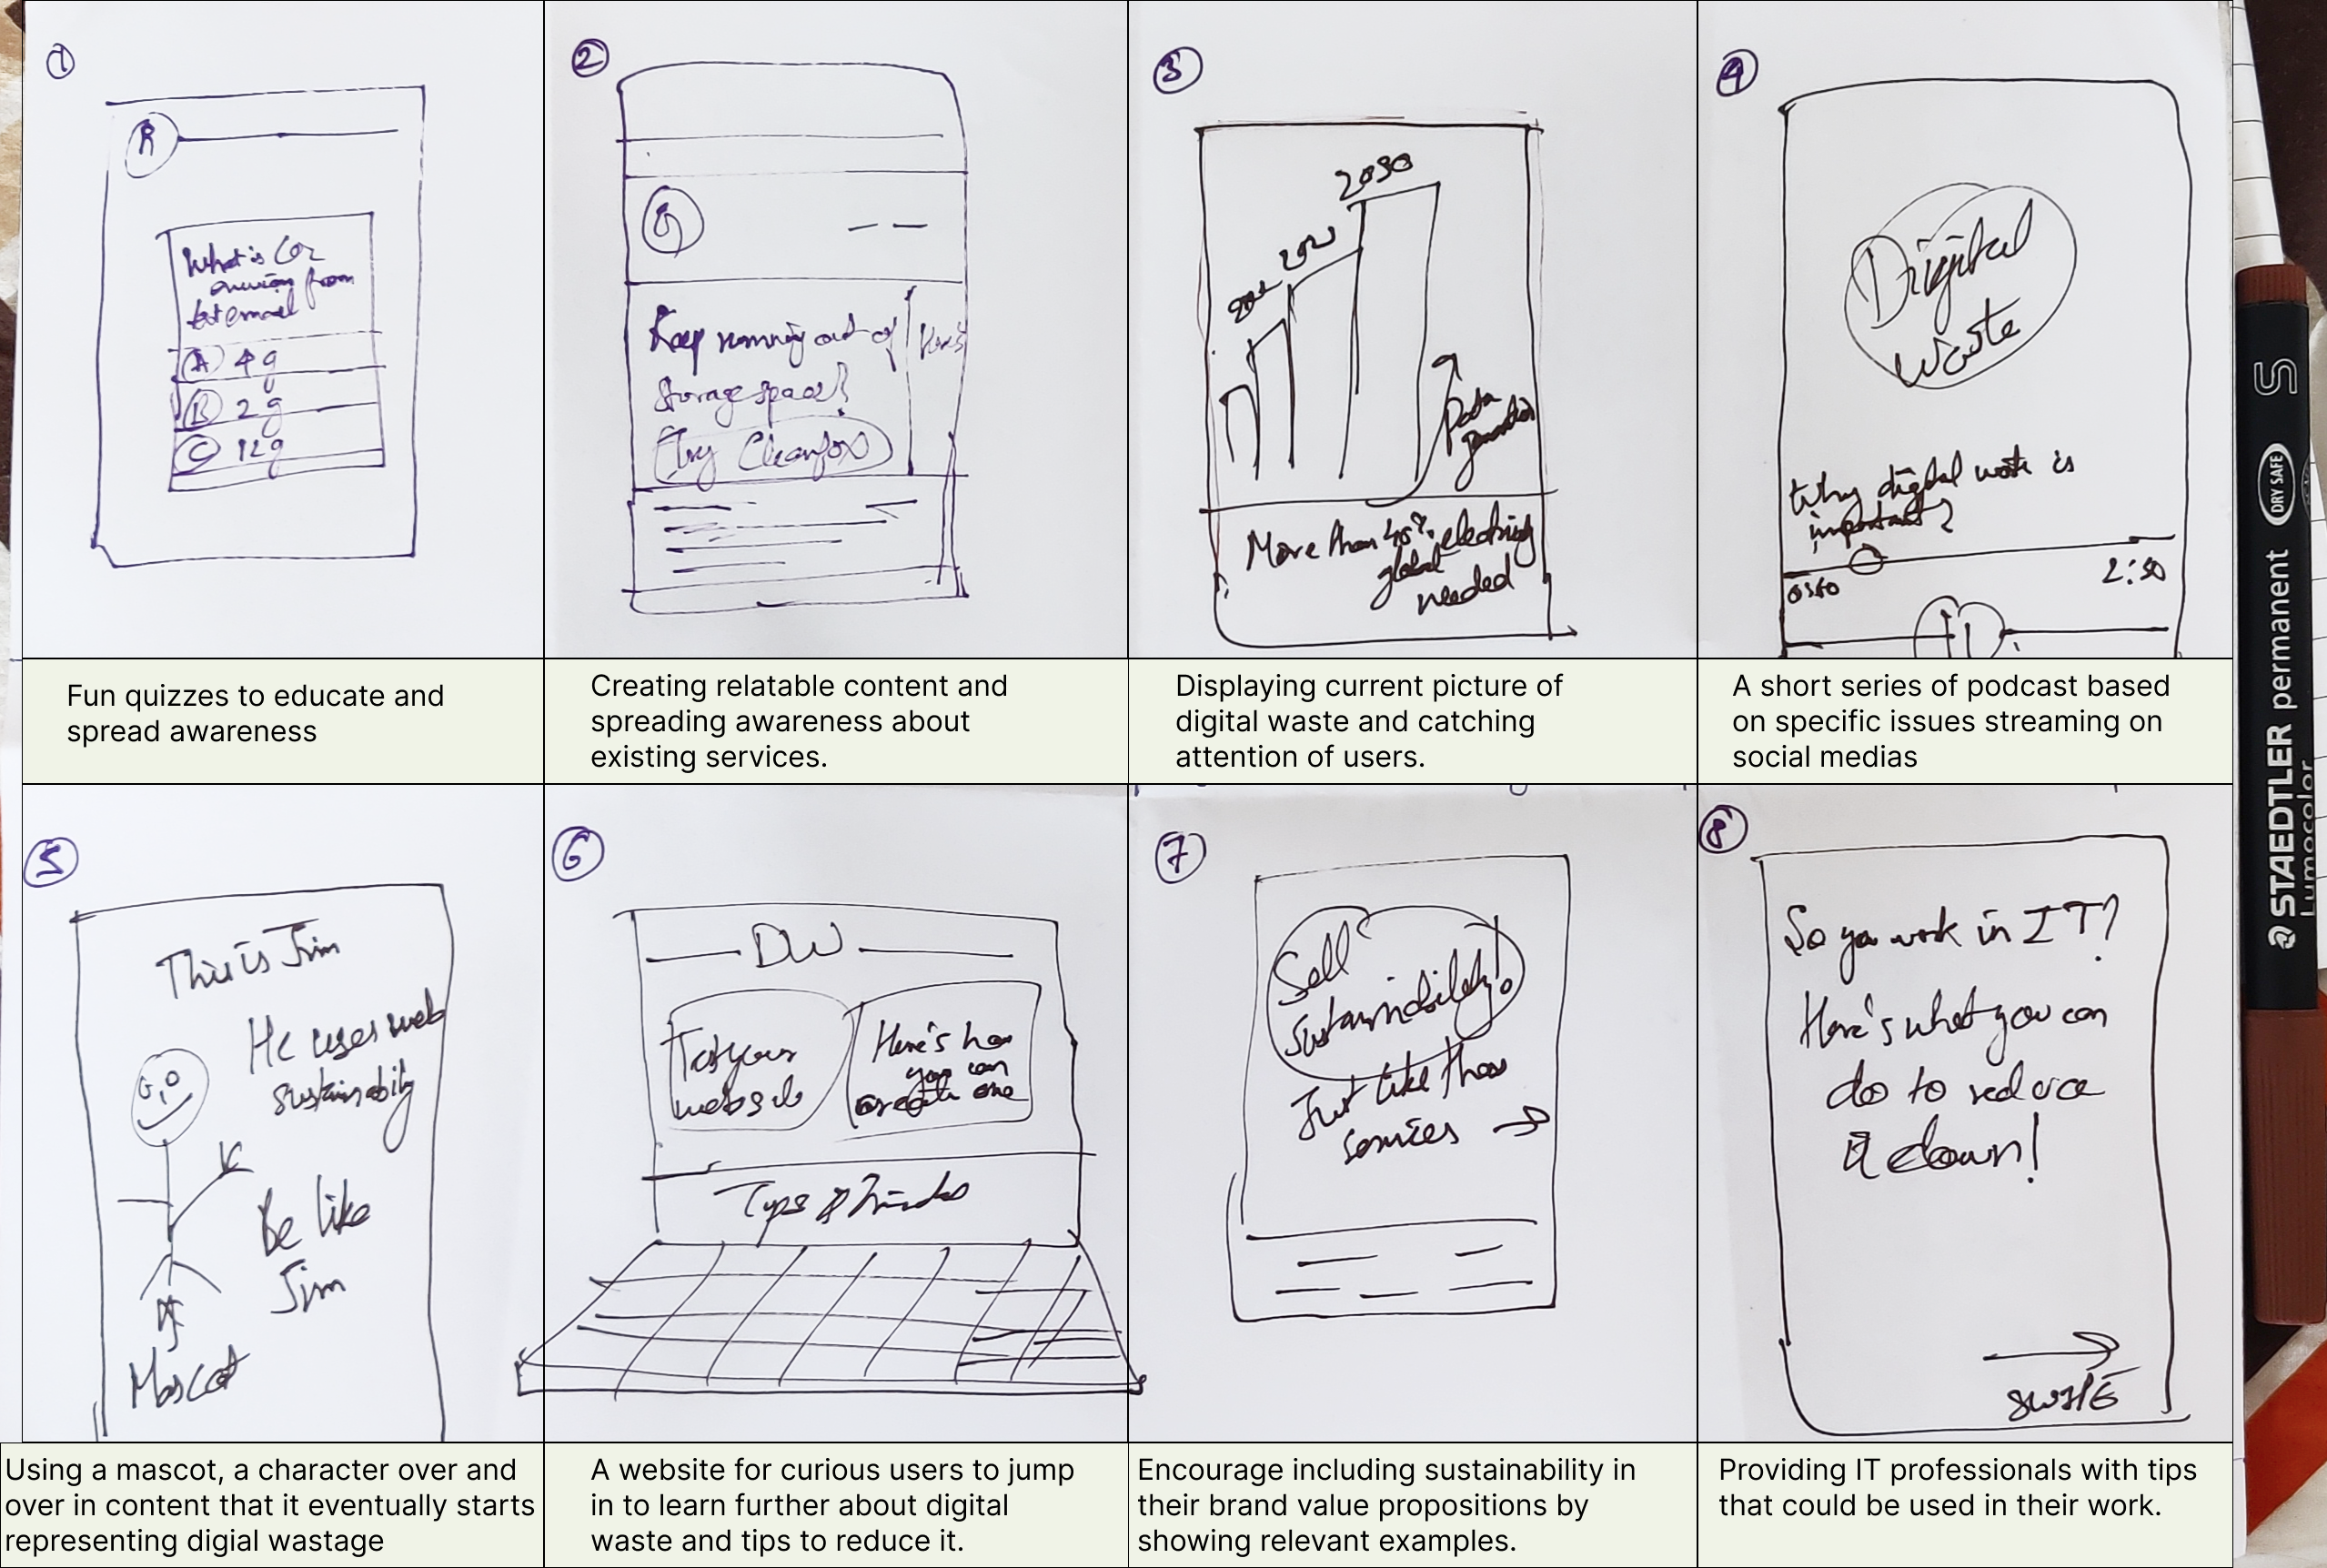 1
R
What is CO2
from
text email
A 4g
B 2g
C 12g
Fun quizzes to educate and
spread awareness
2
Keep running out of
storage space?
Try Cleanfox
Here's
Creating relatable content and
spreading awareness about
existing services.
3
2030
Data
generation
More than 45%
global
needed
Displaying current picture of
digital waste and catching
attention of users.
4
Digital
Waste
Why digital waste is
important?
2:30
A short series of podcast based
on specific issues streaming on
social medias
5
This is Jim
He uses web
sustainabily
Be like
Jim
Mascot
Using a mascot, a character over and
over in content that it eventually starts
representing digial wastage
6
DW
Test your
website
Here's how
you can
create one
Tips & Tricks
A website for curious users to jump
in to learn further about digital
waste and tips to reduce it.
7
Sell
sustainability!
Just like these
services
Encourage including sustainability in
their brand value propositions by
showing relevant examples.
8
So you work in IT?
Here's what you can
do to reduce
it down!
SWIPE
Providing IT professionals with tips
that could be used in their work.
STAEDTLER permanent
Lumocolor
DRY SAFE
S